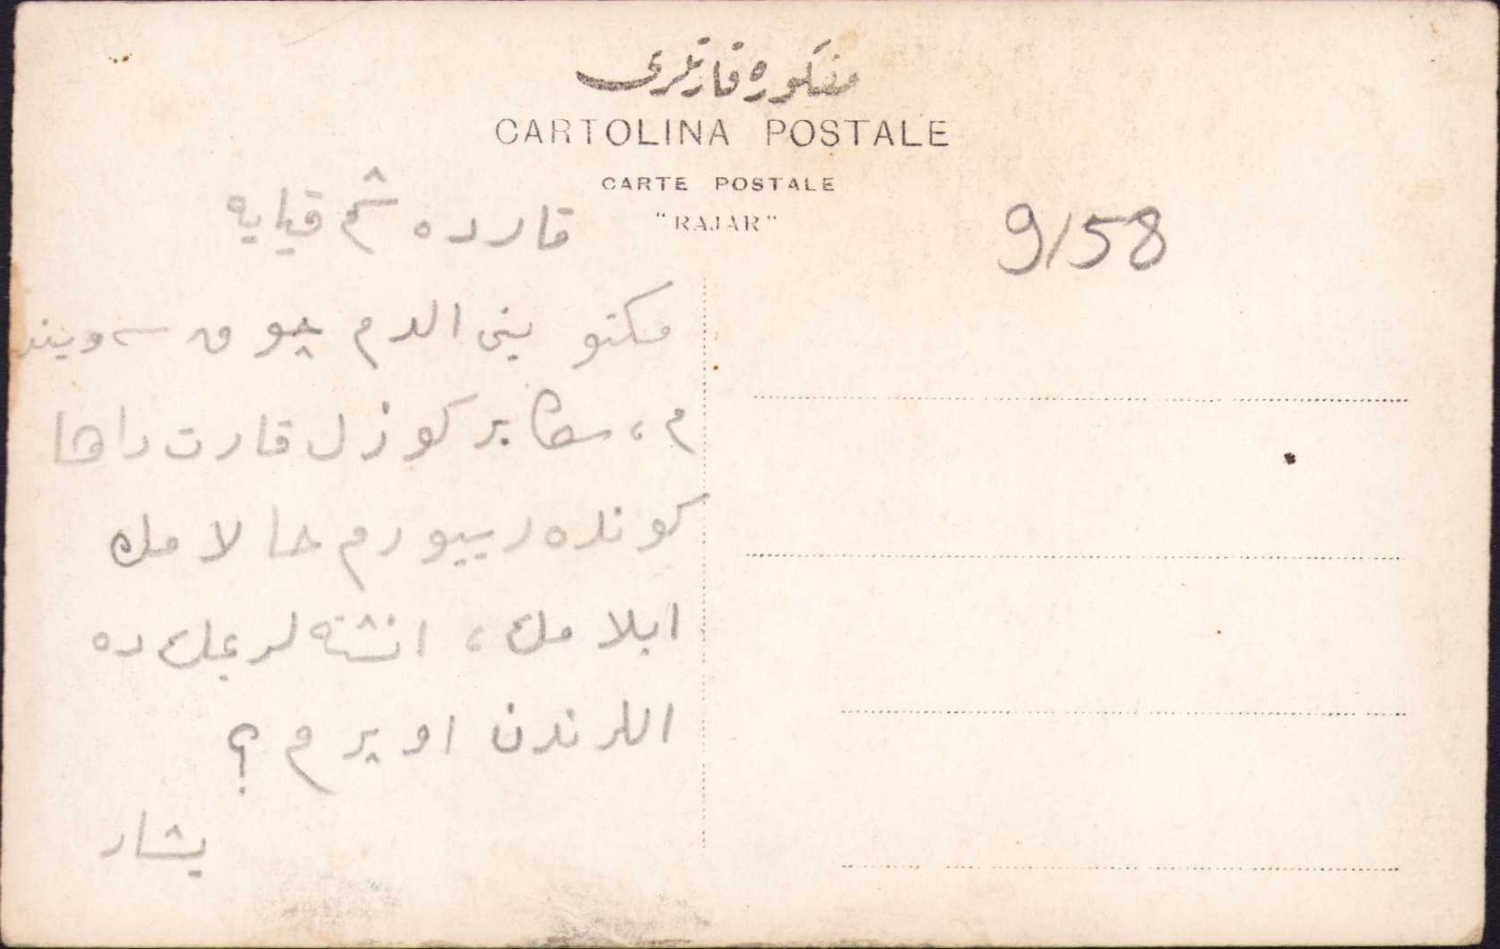 مفكوره قارتلری
CARTOLINA POSTALE
CARTE POSTALE
"RAJAR"
9/58
قارده شم قیایه
مکتو بنی الدم چو ق سویند
م، سکا بر کوزل قارت داها
کونده رییورم خالامك
ابلامك، انشته لرمك ده
اللرندن اوپرم ؟
یشار